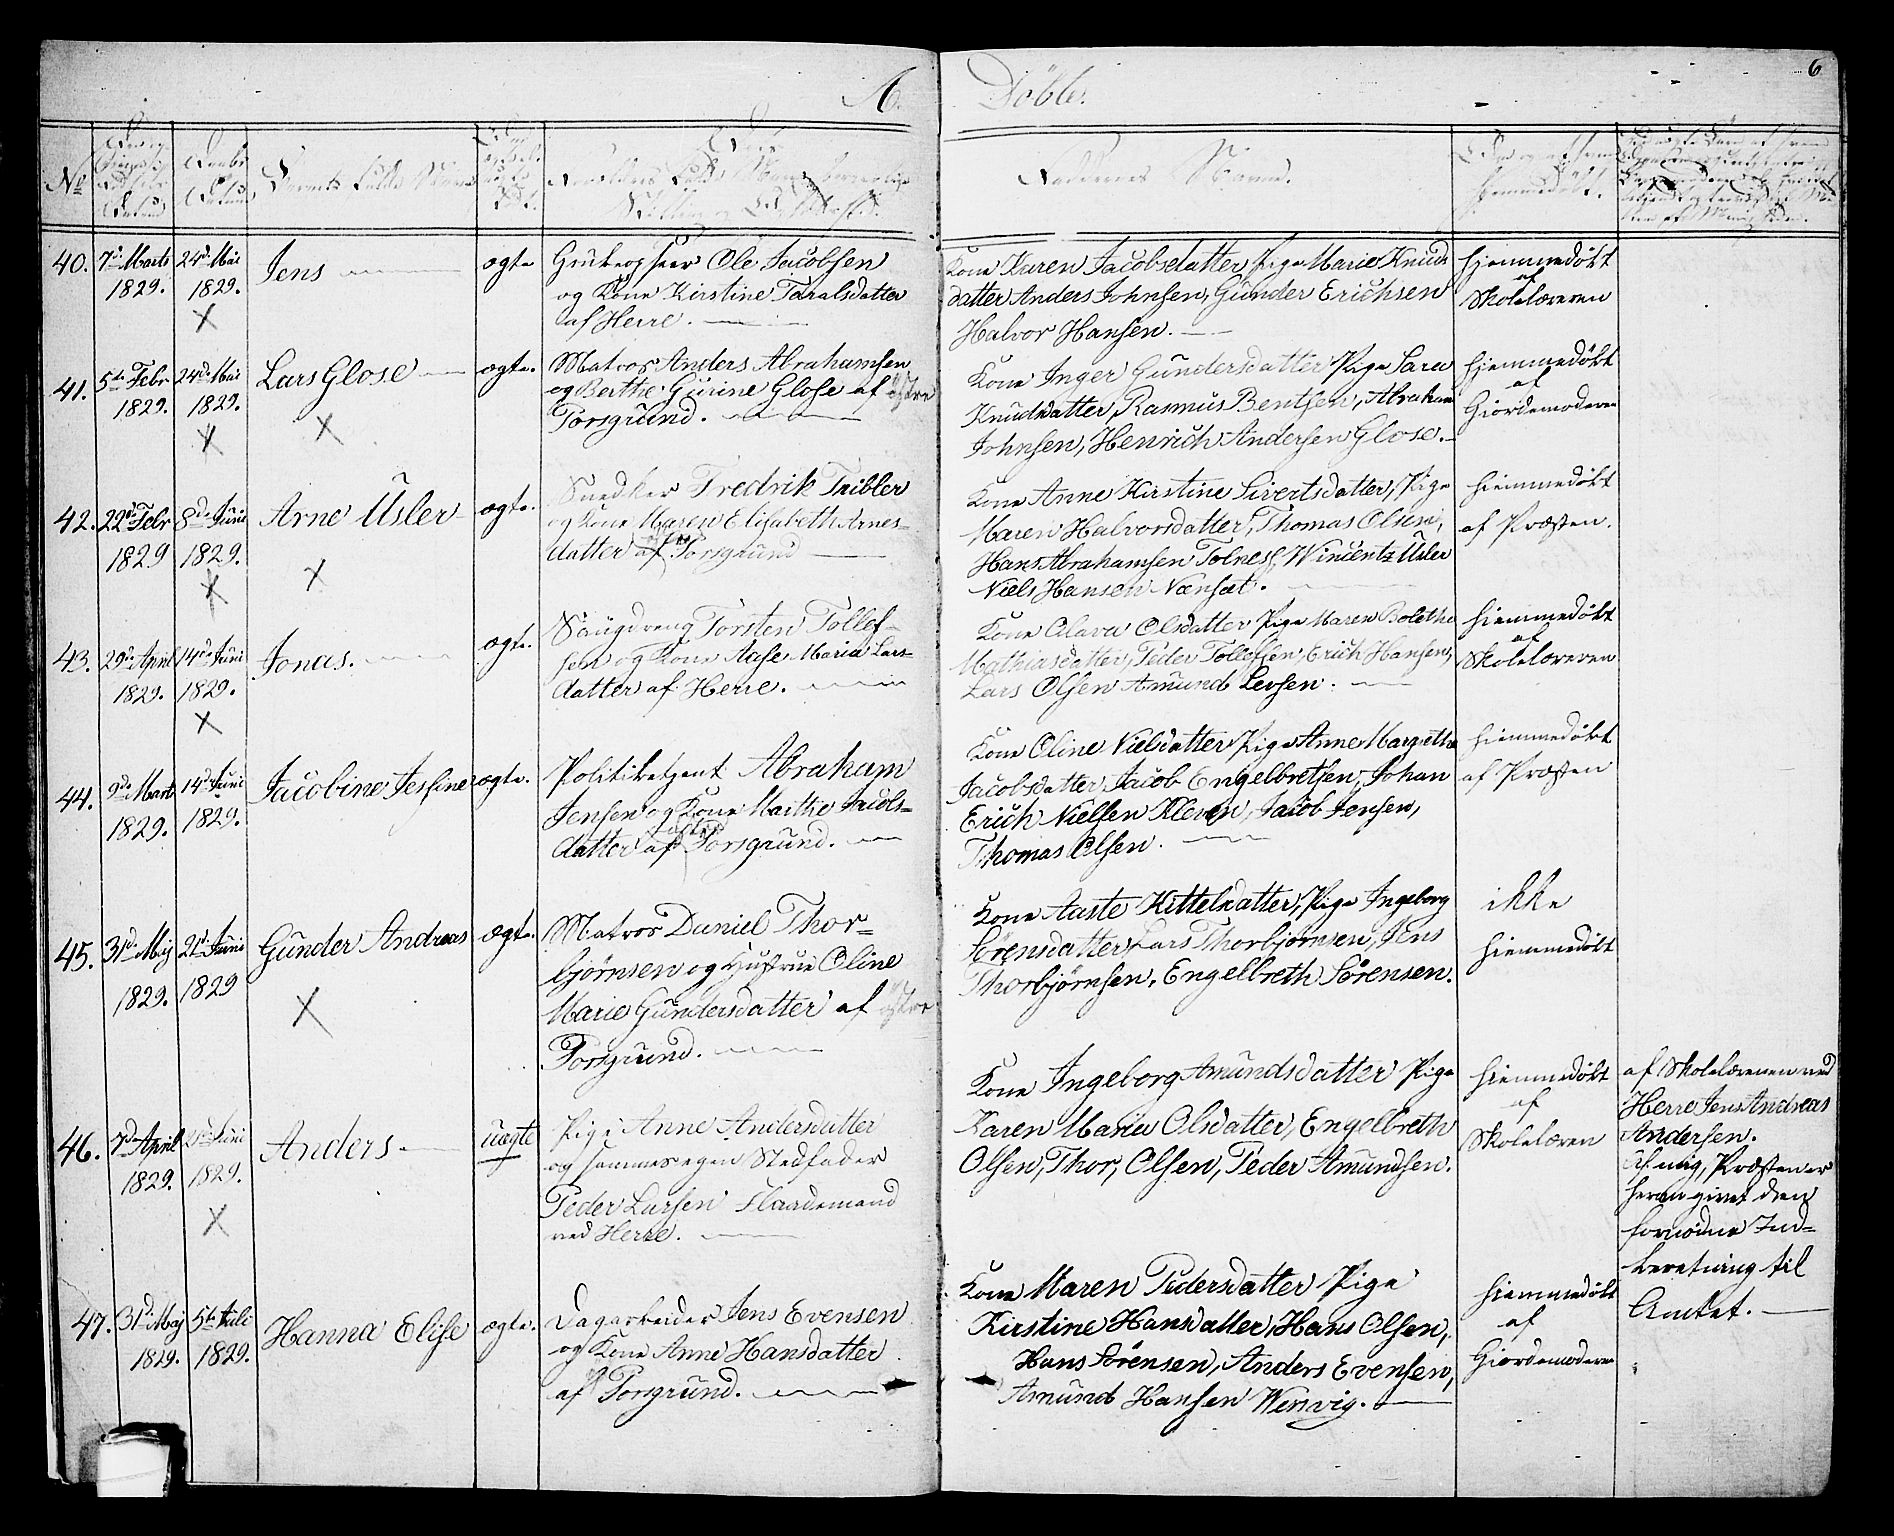 A. Döbte.
6
No
Barnets fulde Navn
Faddernes Navne.
40. 7de Marts 1829. 24de Mai 1829. Jens ægte
Ole Jacobsen
og Kone Kirstine Taralsdatter
af Herre.
Kone Karen Jacobsdatter Pige Marie Knuds
datter Anders Johnsen, Gunder Erichsen
Halvor Hansen.
hjemmedøbt
af
Skolelæreren
41. 5te Febr 1829. 24de Mai 1829. Lars Glose ægte.
Matros Anders Abrahamsen
og Berthe Gurine Glose af østre
Porsgrund.
Kone Inger Gundersdatter Pige Sara
Knudsdatter, Rasmus Bentsen, Abraham
Johnsen, Henrich Andersen Glose.
hjemmedøbt
af
Giordemoderen
42. 22de Febr 1829 8de Juni 1829. Arne Usler ægte.
Snedker Fredrik Tribler
og Kone Maren Elisabeth Arnes-
datter af Porsgrund
Kone Anne Kirstine Sivertsdatter, Pige
Maren Halvorsdatter, Thomas Olsen,
Hans Abrahamsen Tolnes, Wincentz Usler
Niels Hansen Nænset.
hiemmedøbt
af Præsten.
43. 29de April 1829. 14de Juni 1829. Jonas. ægte.
Saugdreng Torsten Tollef-
sen og Kone Aase Maria Lars-
datter af Herre.
Kone Olava Olsdatter Pige Maren Bolethe
Mathiasdatter, Peder Tollefsen, Erich Hansen,
Lars Olsen Amund Levsen.
hiemmedøbt
af
Skolelæreren
44. 9de Marts 1829. 14de Juni 1829. Jacobine Jesfine ægte.
Politibetjent Abraham
Jensen og Kone Marthe Jacobs-
datter af østre Porsgrund.
Kone Oline Nielsdatter Pige Anne Margrethe
Jacobsdatter, Jacob Engelbretsen, Johan
Erich Nielsen Kleven, Jacob Jensen,
Thomas Olsen.
hiemmedøbt
af Præsten
45. 31de Maj 1829. 21de Juni 1829 Gunder Andreas ægte.
Matros Daniel Thor-
bjørnsen og Hustrue Oline
Marie Gundersdatter af østre
Porsgrund.
Kone Aaste Kittelsdatter, Pige Ingeborg
Sørensdatter, Lars Thorbjørnsen, Jens
Thorbjørnsen, Engelbreth Sørensen.
ikke
hiemmedøbt
46. 7de April 1829. 21de Juni 1829. Anders uægte
Pige Anne Andersdatter
og sammes egen Stedfader
Peder Larsen Flaademand
ved Herre.
Kone Ingeborg Amundsdatter Pige
Karen Maria Olsdatter, Engelbreth
Olsen, Thor, Olsen, Peder Amundsen.
hiemmedøbt
af
Skolelæren
af Skolelæreren ved
Herre Jens Andreas
Andersen.
Af mig, Præsten er
herom givet den
fornødne Ind-
beretning til
Amtet.
47. 31de Maj 1829. 5te Juli 1829. Hanna Elise ægte.
Dagarbeider Jens Evensen
og Kone Anne Hansdatter
af Porsgrund.
Kone Maren Pedersdatter Pige
Kirstine Hansdatter, Hans Olsen,
Hans Sörensen, Anders Evensen,
Amund Hansen Wensvig.
hiemmedøbt
af
Giordemoderen